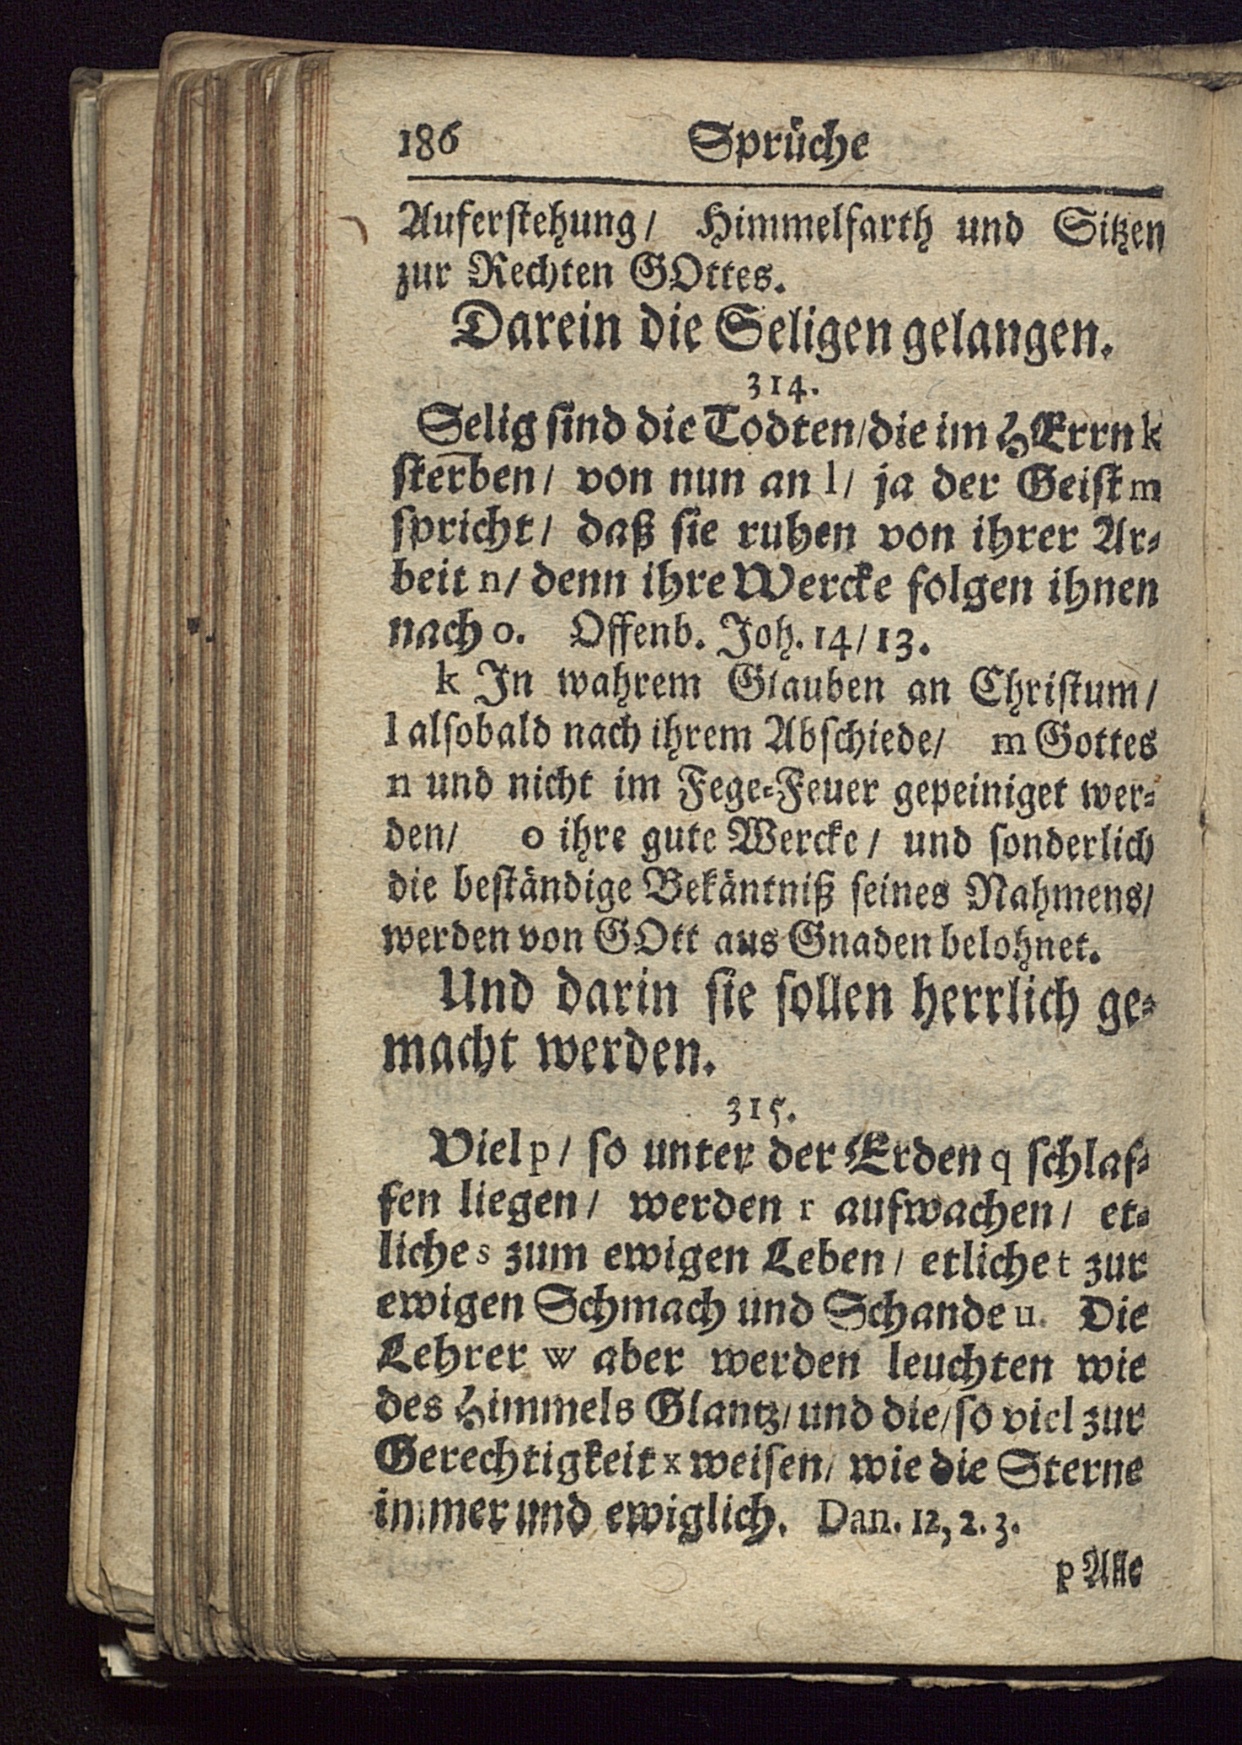 186 Sprüche
Auferstehung/ Himmelfarth und Sitzen
zur Rechten GOttes.
Darein die Seligen gelangen.
314.
Selig sind die Todten/die im HErrn k
sterben/ von nun an l/ ja der Geist m
spricht/ daß sie ruhen von ihrer Ar-
beit n/ denn ihre Wercke folgen ihnen
nach o. Offenb. Joh. 14/13.
k In wahrem Glauben an Christum/
l alsobald nach ihrem Abschiede/ m Gottes
n und nicht im Fege-Feuer gepeiniget wer-
den/ o ihre gute Wercke/ und sonderlich
die beständige Bekäntniß seines Nahmens/
werden von GOtt aus Gnaden belohnet.
Und darin sie sollen herrlich ge-
macht werden.
315.
Viel p/ so unter der Erden q schlaf-
fen liegen/ werden r aufwachen/ et-
liche s zum ewigen Leben/ etliche t zur
ewigen Schmach und Schande u. Die
Lehrer w aber werden leuchten wie
des Himmels Glantz/und die/so viel zur
Gerechtigkeit x weisen/ wie die Sterne
immer und ewiglich. Dan. 12, 2. 3.
p Alle